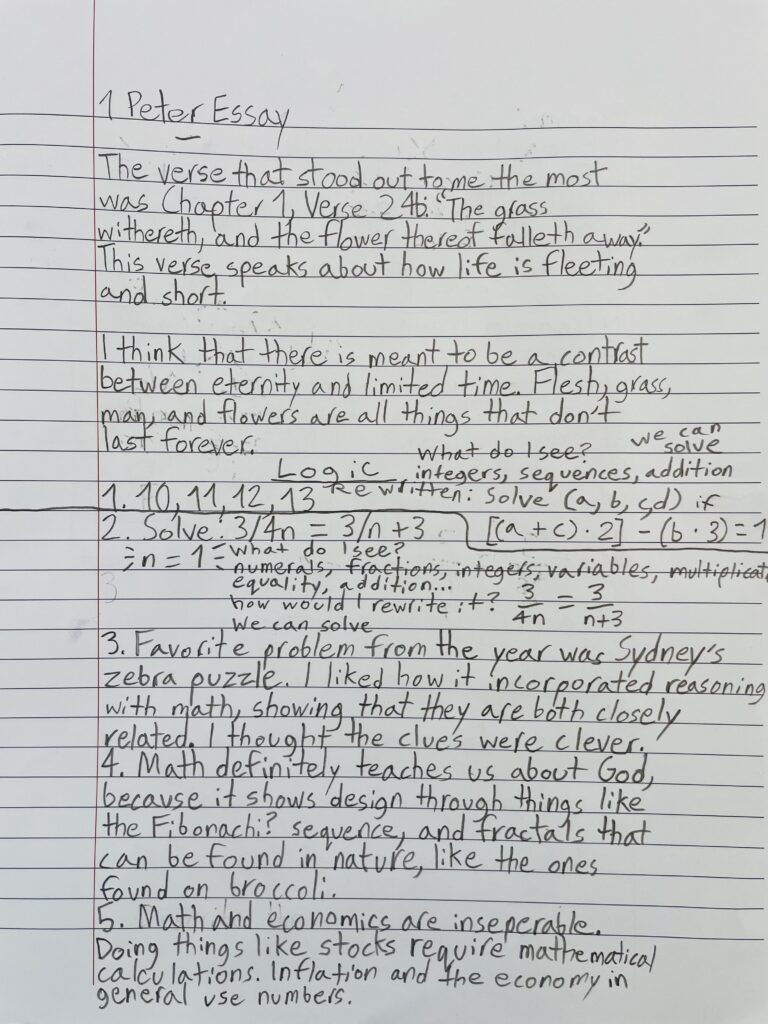 1 Peter Essay
The verse that stood out to me the most
was Chapter 1, Verse 24b: "The grass
withereth, and the flower thereof falleth away."
This verse speaks about how life is fleeting
and short.
I think that there is meant to be a contrast
between eternity and limited time. Flesh, grass,
man, and flowers are all things that don't
last forever.
Logic
What do I see? we can solve
integers, sequences, addition
1. 10, 11, 12, 13 Rewritten: Solve (a, b, c, d) if
[(a + c) · 2] - (b · 3) = 1
2. Solve: 3/4n = 3/n + 3
n = 1
What do I see?
numerals, fractions, integers, variables, multiplicat
equality, addition...
how would I rewrite it? 3/4n = 3/n+3
We can solve
3. Favorite problem from the year was Sydney's
zebra puzzle. I liked how it incorporated reasoning
with math, showing that they are both closely
related. I thought the clues were clever.
4. Math definitely teaches us about God,
because it shows design through things like
the Fibonachi? sequence, and fractals that
can be found in nature, like the ones
found on broccoli.
5. Math and economics are inseperable.
Doing things like stocks require mathematical
calculations. Inflation and the economy in
general use numbers.